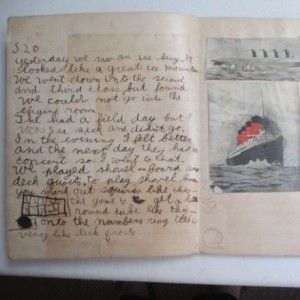 S20
yesterday we saw an ice berg, It
looked like a great ice mountain
We went down into the second
and third class, but found
We could not go into the
engine room.
The had a field day but I
was sea sick and didn't go.
In the evening I felt better
And the next day they had a
concert so I went to that.
We played shovel-board and
deck quoits, to play shovel board
you mark out squares like
the game is get a
round cube like
onto the numbers ring
very like deck quoits